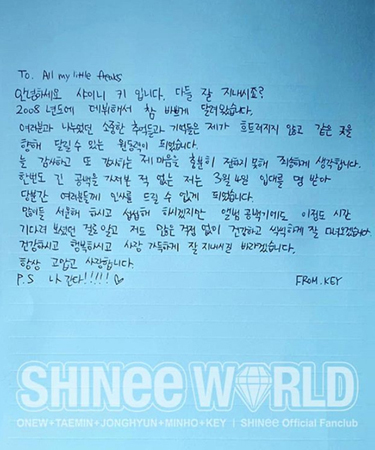 To. All my little freaks
안녕하세요 샤이니 키 입니다. 다들 잘 지내시죠?
2008년도에 데뷔해서 참 바쁘게 달려왔습니다.
여러분과 나누었던 소중한 추억들과 기억들은 제가 흐트러지지 않고 같은 곳을
향해 달릴 수 있는 원동력이 되었습니다.
늘 감사하고 또 감사하는 제 마음을 충분히 전하지 못해 죄송하게 생각합니다.
한번도 긴 공백을 가져본 적 없는 저는 3월 4일 입대를 명 받아
당분간 여러분들께 인사를 드릴 수 없게 되었습니다.
많이들 서운해 하시고 섭섭해 하시겠지만 앨범 공백기에도 이정도 시간
기다려 보셨던 걸로 알고 저도 많은 걱정 없이 건강하고 씩씩하게 잘 다녀오겠습니다.
건강하시고 행복하시고 사랑 가득하게 잘 지내시길 바라겠습니다.
항상 고맙고 사랑합니다.
P.S 나 간다!!!!! FROM. KEY
SHINee WORLD
ONEW+TAEMIN+JONGHYUN+MINHO+KEY | SHINee Official Fanclub